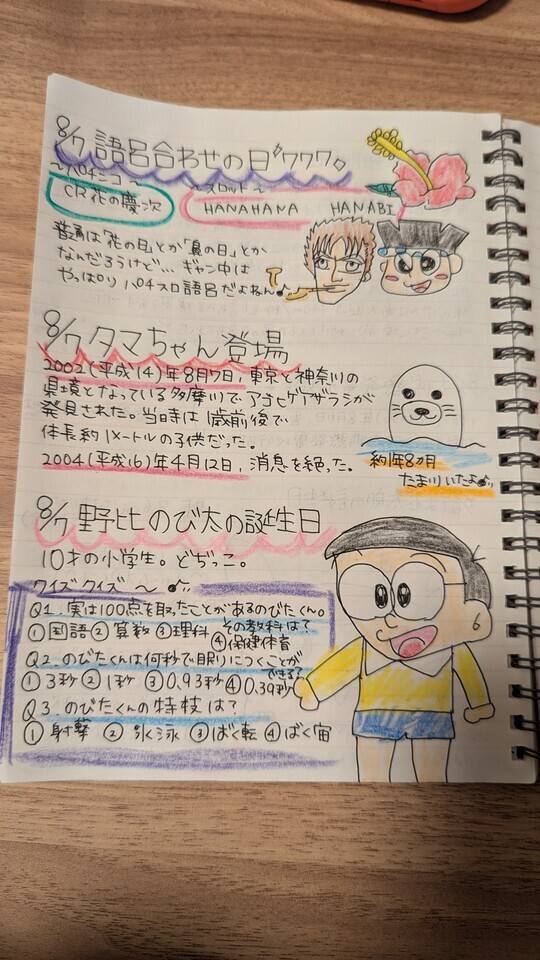 8/7 語呂合わせの日ワワワ。
~パチンコ~
CR花の慶次
~スロット~
HANAHANA HANABI
普通は「花の日」とか「鼻の日」とか
なんだろうけど…ギャン中は
やっぱりパチスロ語呂だよねん♪
8/7 タマちゃん登場
2002(平成14)年8月7日,東京と神奈川の
県境となっている多摩川でアゴヒゲアザラシが
発見された。当時は1歳前後で
体長約1メートルの子供だった。
2004(平成16)年4月12日,消息を絶った。
約1年8ヵ月
たま川いたよ♪
8/7 野比のび太の誕生日
10才の小学生。どぢっこ。
クイズクイズ~♪
Q1.実は100点を取ったことがあるのびたくん。
その教科は?
①国語②算数③理科
④保健体育
Q2.のびたくんは何秒で眠りにつくことが
できる?
①3秒②1秒③0.93秒④0.39秒
Q3.のびたくんの特技は?
①射撃 ②水泳 ③ばく転 ④ばく宙